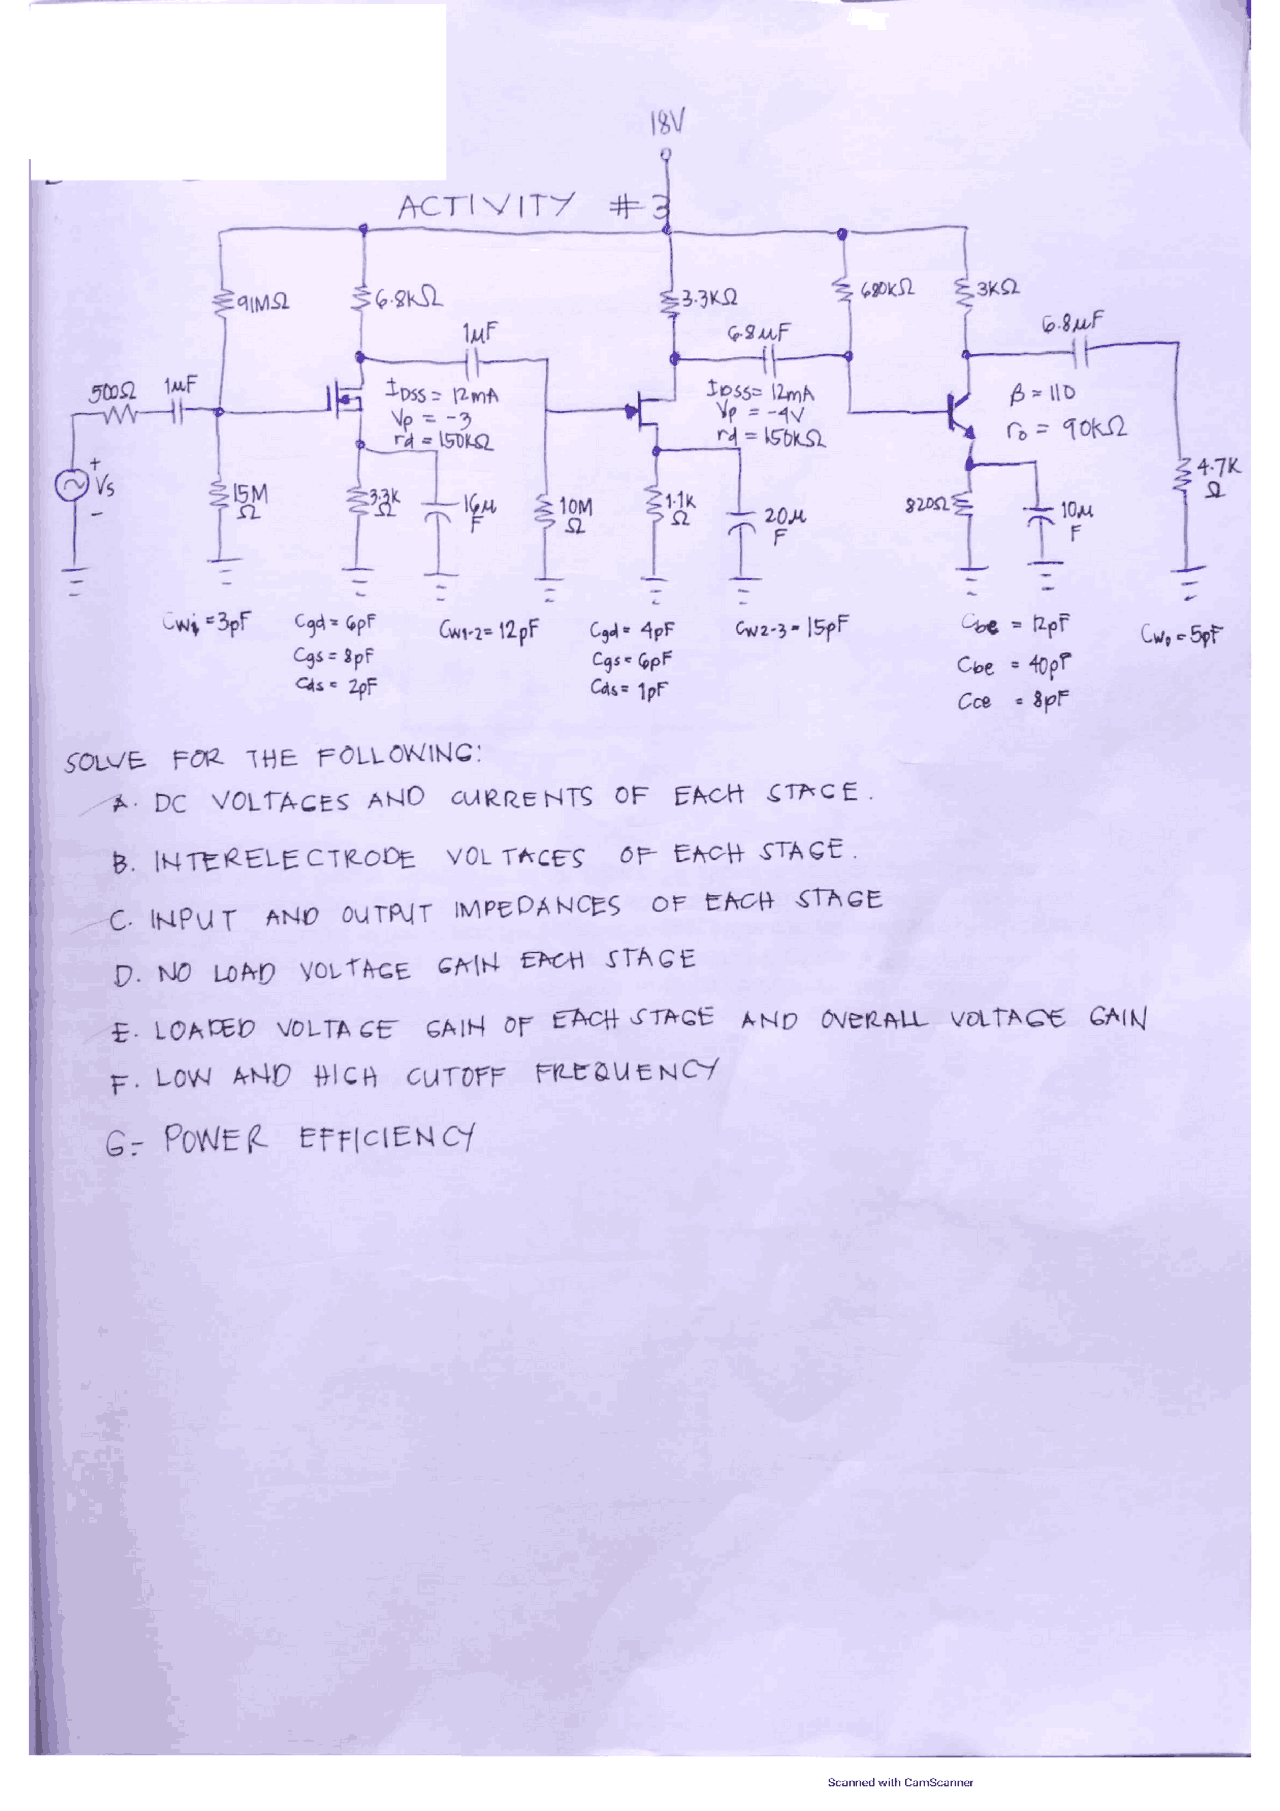 18V
ACTIVITY #3
91MΩ
6.8KΩ
3.3KΩ
680KΩ
3KΩ
1μF
6.8μF
6.8μF
500Ω
1μF
IDSS = 12mA
Vp = -3
rd = 150KΩ
IDSS = 12mA
Vp = -4V
rd = 150KΩ
β = 110
ro = 90KΩ
+
Vs
-
15M
Ω
3.3K
Ω
16μ
F
10M
Ω
1.1K
Ω
20μ
F
820Ω
10μ
F
4.7K
Ω
Cwi = 3pF
Cgd = 6pF
Cgs = 8pF
Cds = 2pF
Cw1-2 = 12pF
Cgd = 4pF
Cgs = 6pF
Cds = 1pF
Cw2-3 = 15pF
Cbe = 12pF
Cbe = 40pF
Cce = 8pF
Cwo = 5pF
SOLVE FOR THE FOLLOWING:
A. DC VOLTAGES AND CURRENTS OF EACH STAGE.
B. INTERELECTRODE VOLTAGES OF EACH STAGE.
C. INPUT AND OUTPUT IMPEDANCES OF EACH STAGE
D. NO LOAD VOLTAGE GAIN EACH STAGE
E. LOADED VOLTAGE GAIN OF EACH STAGE AND OVERALL VOLTAGE GAIN
F. LOW AND HIGH CUTOFF FREQUENCY
G- POWER EFFICIENCY
Scanned with CamScanner